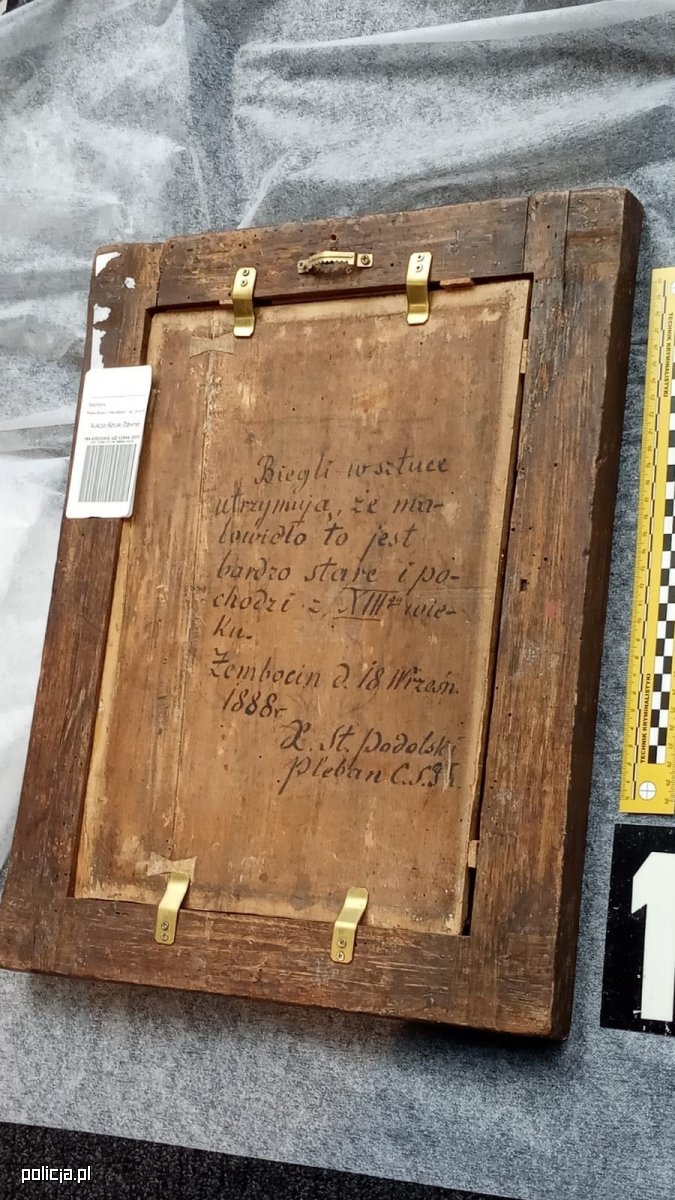 Biegli w sztuce
utrzymują, że ma-
lowidło to jest
bardzo stare i po-
chodzi z XIIIgo wie-
ku.
Żembocin d. 18 Wrześn.
1888r.
X. St. Podolski
Pleban
TECHNIK KRYMINALISTYKI
TECHNIK KRYMINALISTYKI
1
policja.pl